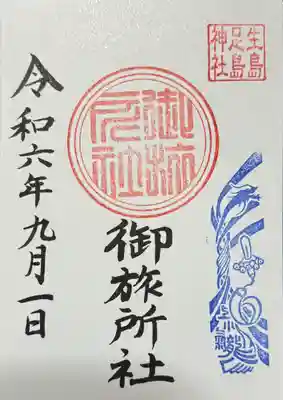 生島
足島
神社
御旅
所社
御旅所社
令和六年九月一日